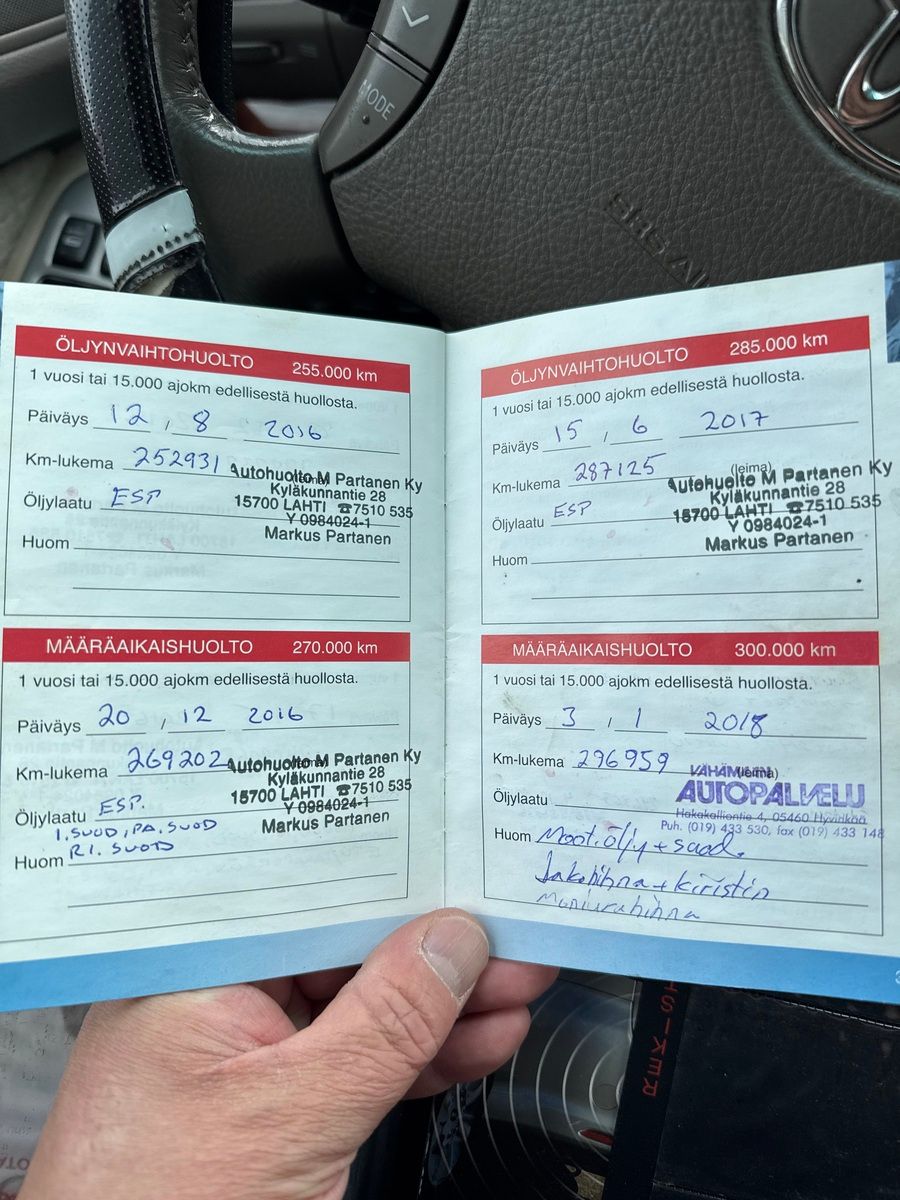 MODE
SRS AI
ÖLJYNVAIHTOHUOLTO 255.000 km
1 vuosi tai 15.000 ajokm edellisestä huollosta.
Päiväys 12 , 8 2016
Km-lukema 252931
Öljylaatu ESP
Huom
Autohuolto M Partanen Ky
Kyläkunnantie 28
15700 LAHTI ☎7510 535
Y 0984024-1
Markus Partanen
MÄÄRÄAIKAISHUOLTO 270.000 km
1 vuosi tai 15.000 ajokm edellisestä huollosta.
Päiväys 20 , 12 2016
Km-lukema 269202
Öljylaatu ESP.
I.SUOD, PA.SUOD
Huom RI. SUOD
Autohuolto M Partanen Ky
Kyläkunnantie 28
15700 LAHTI ☎7510 535
Y 0984024-1
Markus Partanen
ÖLJYNVAIHTOHUOLTO 285.000 km
1 vuosi tai 15.000 ajokm edellisestä huollosta.
Päiväys 15 , 6 2017
Km-lukema 287125
(leima)
Öljylaatu ESP
Huom
Autohuolto M Partanen Ky
Kyläkunnantie 28
15700 LAHTI ☎7510 535
Y 0984024-1
Markus Partanen
MÄÄRÄAIKAISHUOLTO 300.000 km
1 vuosi tai 15.000 ajokm edellisestä huollosta.
Päiväys 3 , 1 2018
Km-lukema 296959
(leima)
Öljylaatu
VÄHÄMÄEN
AUTOPALVELU
Hakakalliontie 4, 05460 Hyvinkää
Puh. (019) 433 530, fax (019) 433 148
Huom Moot.öljy + suod.
Jakohihna + kiristin